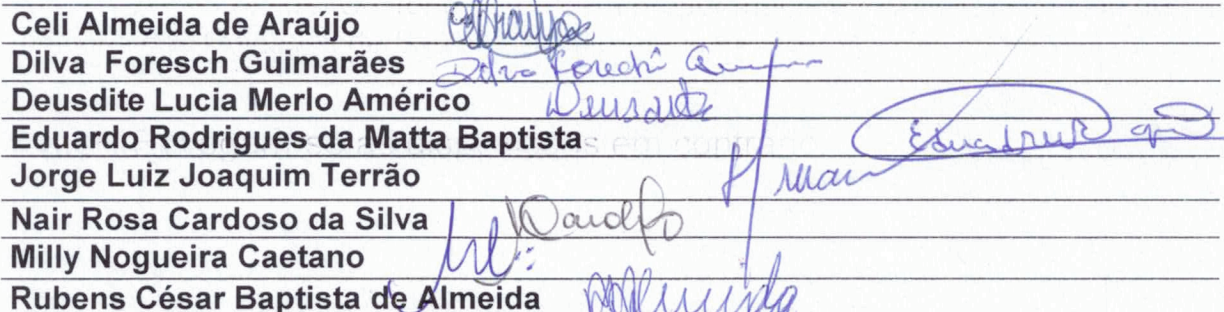 Celi Almeida de Araújo
Dilva Foresch Guimarães
Deusdite Lucia Merlo Américo Deusdite
Eduardo Rodrigues da Matta Baptista
Jorge Luiz Joaquim Terrão
Nair Rosa Cardoso da Silva
Milly Nogueira Caetano
Rubens César Baptista de Almeida Almeida